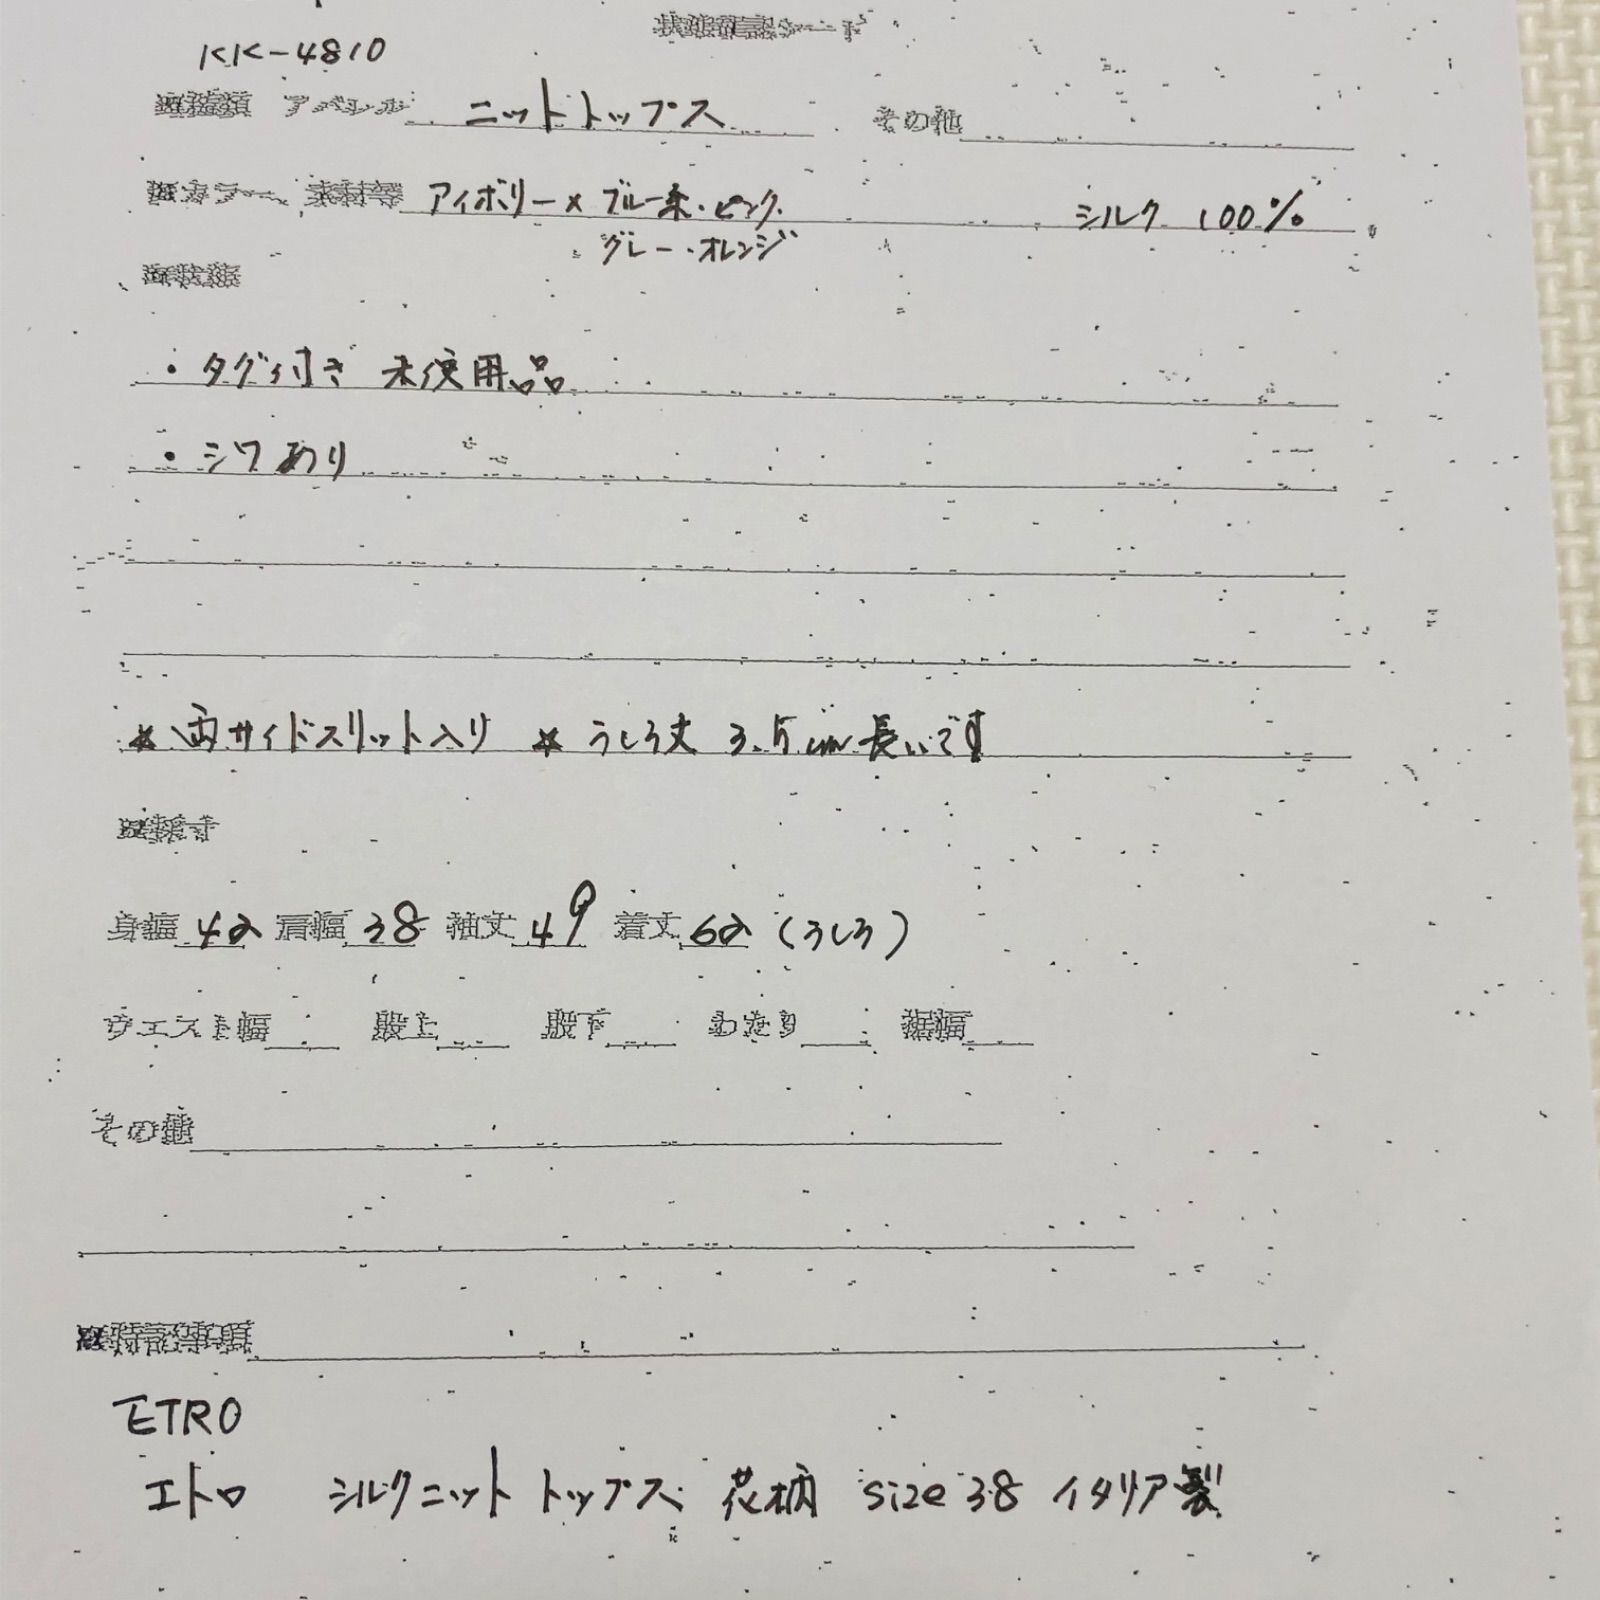 状態確認シート
KK-4810
■種類 アパレル ニットトップス その他
■カラー、素材等 アイボリー×ブルー系・ピンク シルク 100%
グレー・オレンジ
■状態
・タグ付き 未使用品
・シワあり
* 両サイドスリット入り * うしろ丈 3.5cm長いです
■採寸
身幅 42 肩幅 38 袖丈 49 着丈 62 (うしろ)
ウエスト幅 股上 股下 わたり 裾幅
その他
■特記事項
ETRO
エトロ シルクニット トップス 花柄 size 38 イタリア製